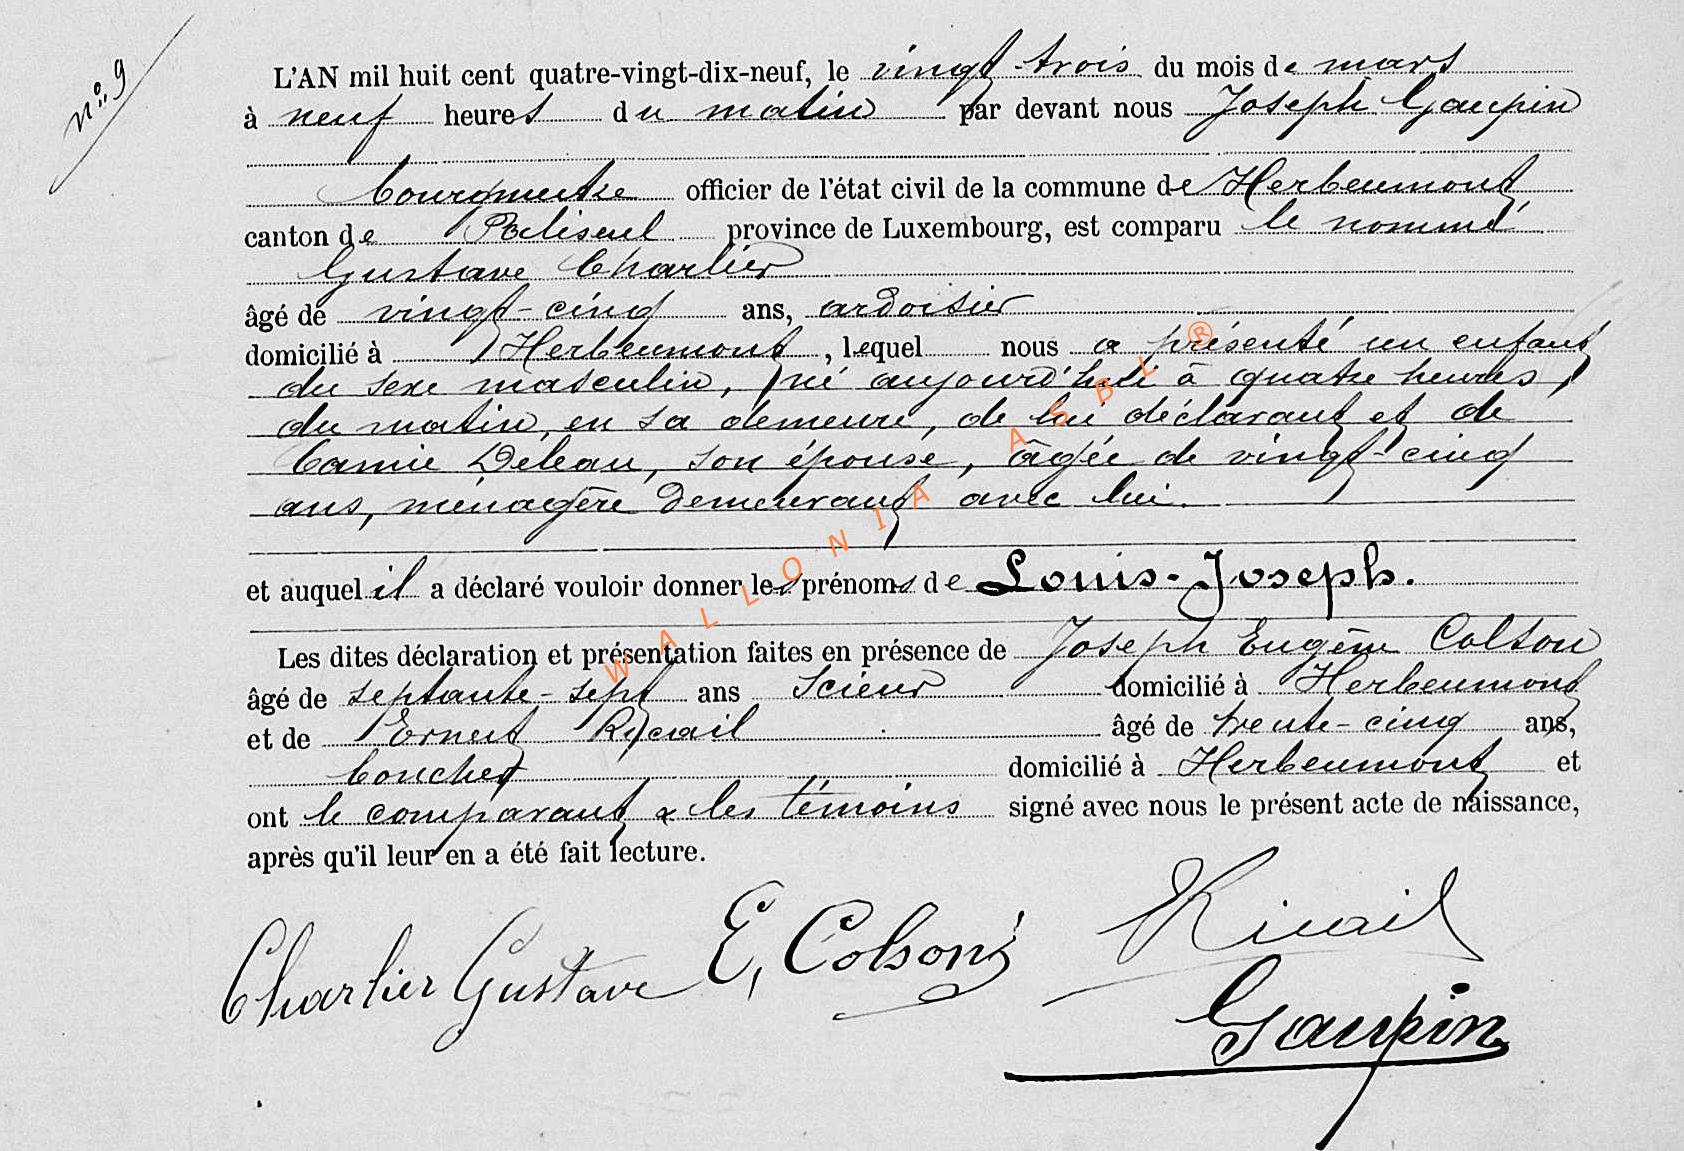 n° 9
L'AN mil huit cent quatre-vingt-dix-neuf, le vingt-trois du mois de mars
à neuf heures du matin par devant nous Joseph Gaupin
bourgmestre officier de l'état civil de la commune de Herbeumont,
canton de Paliseul province de Luxembourg, est comparu le nommé
Gustave Charlier
âgé de vingt-cinq ans, ardoisier
domicilié à Herbeumont, lequel nous a présenté un enfant
du sexe masculin, né aujourd'hui à quatre heures,
du matin, en sa demeure, de lui déclarant et de
Camie Deleau, son épouse, âgée de vingt-cinq
ans, ménagère demeurant avec lui.
et auquel il a déclaré vouloir donner les prénoms de Louis-Joseph.
Les dites déclaration et présentation faites en présence de Joseph Eugène Colson
âgé de septante-sept ans Scieur domicilié à Herbeumont
et de Ernest Ricail âgé de trente-cinq ans,
domicilié à Herbeumont et
ont le comparant & les témoins signé avec nous le présent acte de naissance,
après qu'il leur en a été fait lecture.
Charlier Gustave E, Colson Ricail
Gaupin
WALLONIA ASBL ®